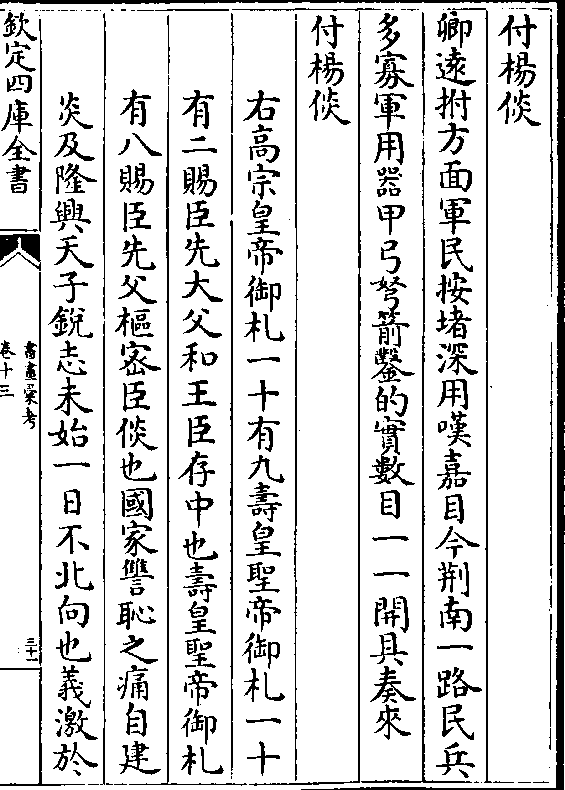 付楊倓
卿逺拊方面軍民按堵深用嘆嘉目今荆南一路民兵
多寡軍用器甲弓弩箭鑿的實數目一一開具奏來
付楊倓
右高宗皇帝御札一十有九壽皇聖帝御札一十
有二賜臣先大父和王臣存中也壽皇聖帝御札
有八賜臣先父樞宻臣倓也國家讐恥之痛自建
炎及隆興天子銳志未始一日不北向也義激於
欽定四庫全書
書畫彚考
卷十三
三十一